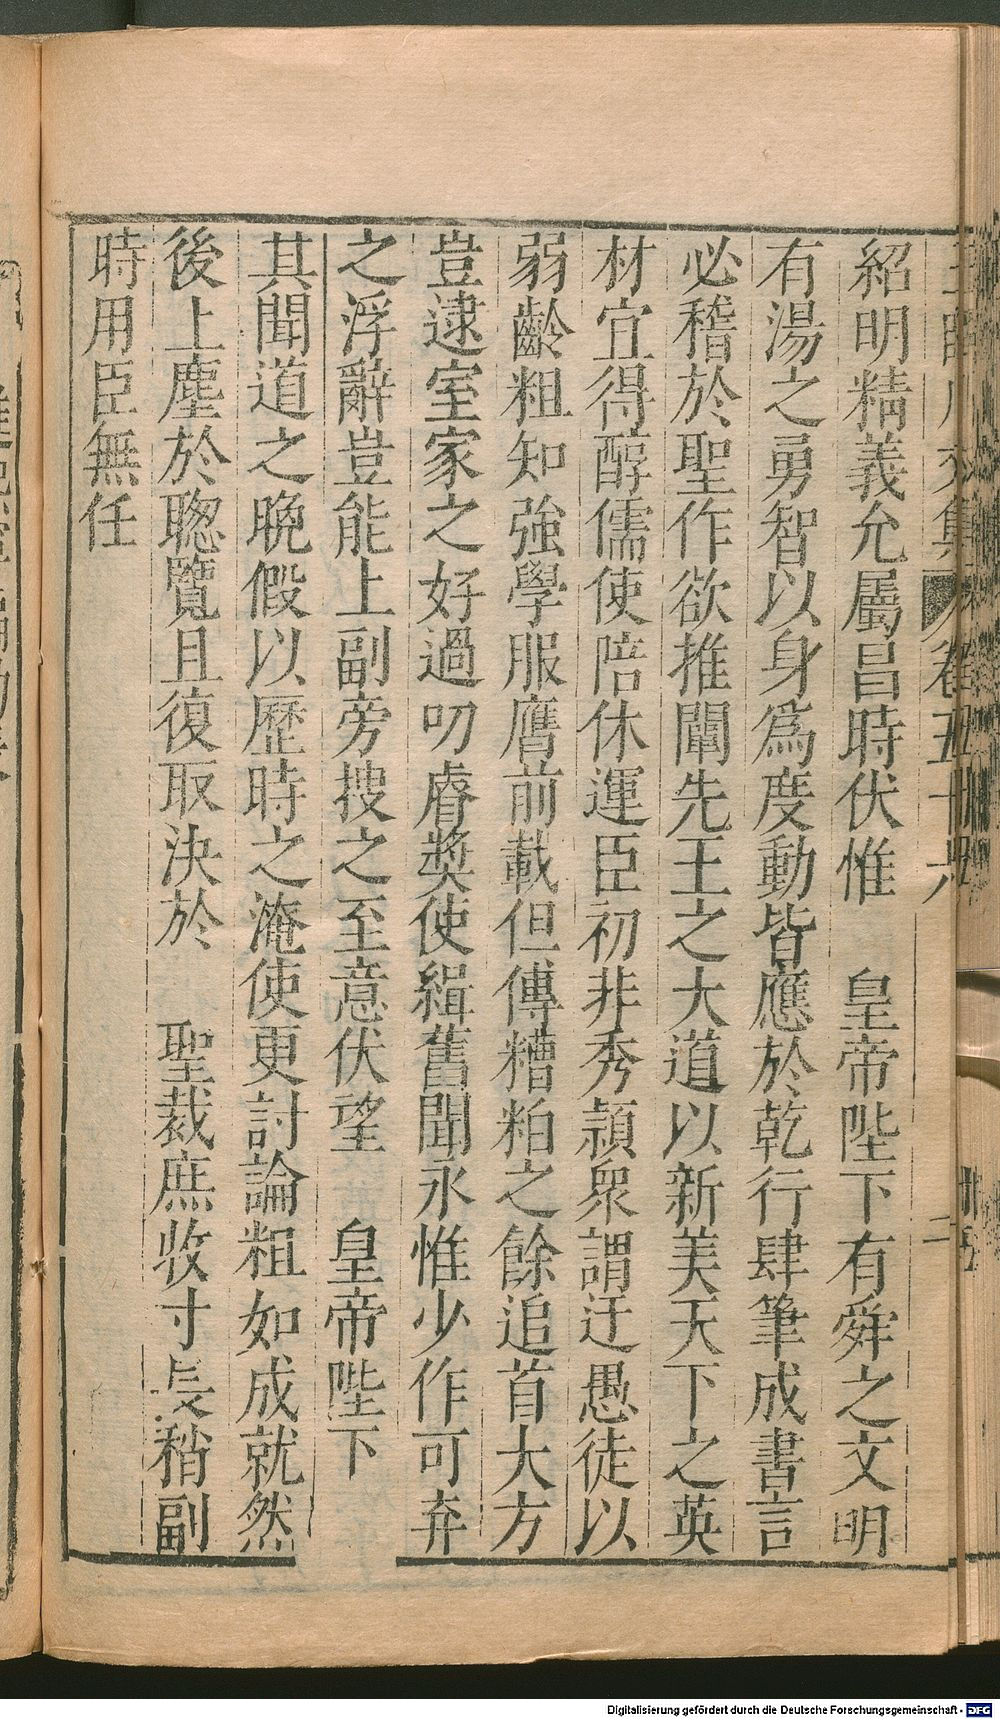 紹明精義允屬昌時伏惟　皇帝陛下有舜之文明
有湯之勇智以身爲度動皆應於乾行肆筆成書言
必稽於聖作欲推闡先王之大道以新美天下之英
材宜得醇儒使陪休運臣初非秀穎衆謂迂愚徒以
弱齡粗知強學服膺前載但傳糟粕之餘追首大方
豈逮室家之好過叨睿奬使緝舊聞永惟少作可弃
之浮辭豈能上副旁搜之至意伏望　皇帝陛下
其聞道之晚假以歷時之淹使更討論粗如成就然
後上塵於聦覽且復取決於　聖裁庶收寸長稍副
時用臣無任
卷五十六
二
Digitalisierung gefördert durch die Deutsche Forschungsgemeinschaft - DFG